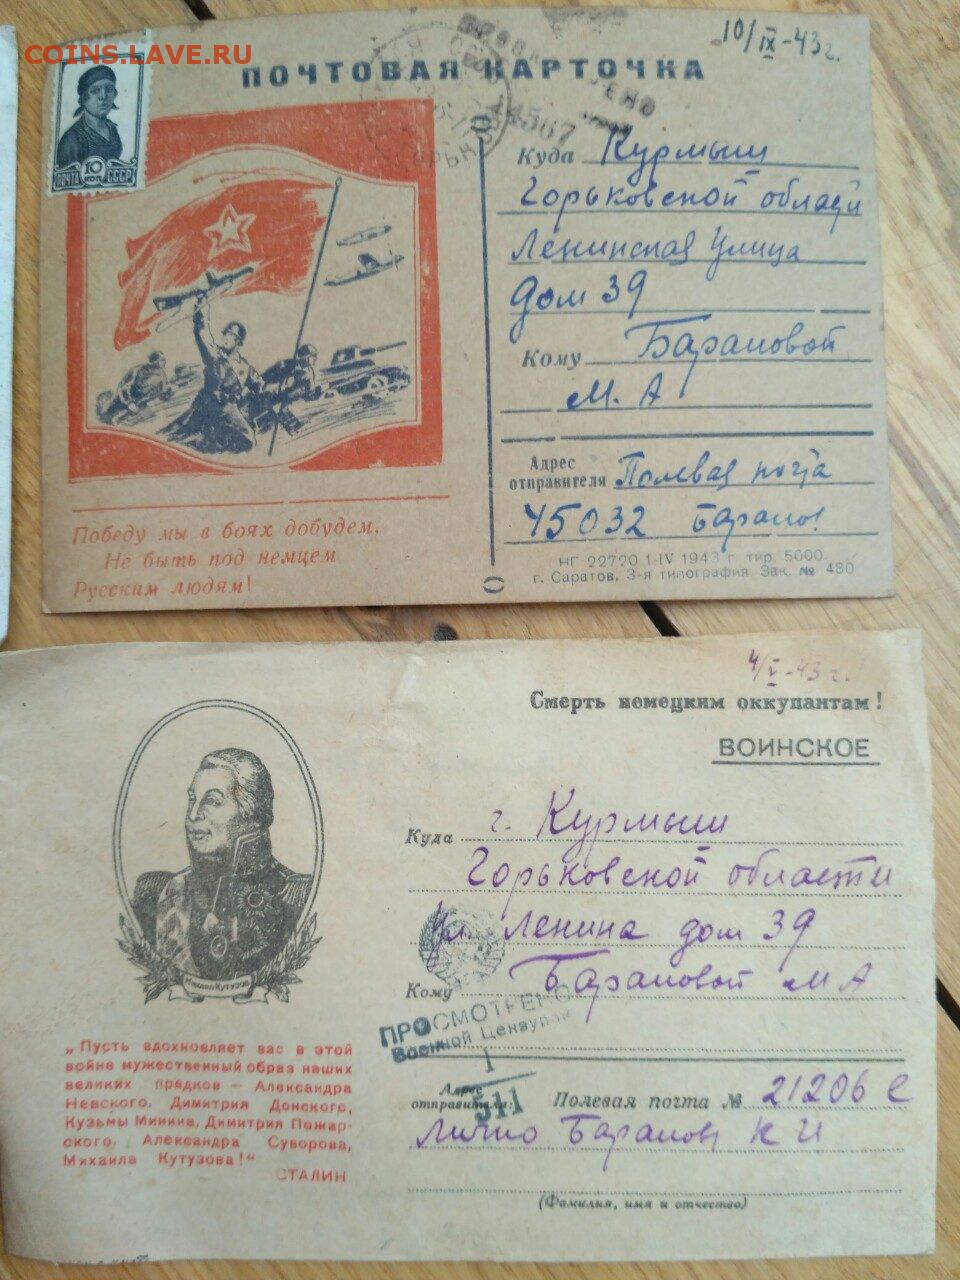 COINS.LAVE.RU
10/IX-43г.
ПОЧТОВАЯ КАРТОЧКА
ПОЧТА 10 КОП СССР
Куда Курмыш
Горьковской области
Ленинская улица
Дом 39
Кому Барановой
М. А
Адрес
отправителя Полевая почта
45032 Баранов
НГ 22720 1-IV 1943 г. тир. 5000.
г. Саратов, 3-я типография Зак. № 480
Победу мы в боях добудем.
Не быть под немцем
Русским людям!
4/V-43г.
Смерть немецким оккупантам!
ВОИНСКОЕ
Куда г. Курмыш
Горьковской области
ул. Ленина дом 39
Кому Барановой М А
ПРОСМОТРЕНО
Военной Цензурой
1
511
Адрес
отправителя: Полевая почта № 21206 С
лично Баранов К И
(Фамилия, имя и отчество)
Михаил Кутузов
„Пусть вдохновляет вас в этой
войне мужественный образ наших
великих предков — Александра
Невского, Димитрия Донского,
Кузьмы Минина, Димитрия Пожар-
ского, Александра Суворова,
Михаила Кутузова!"
СТАЛИН